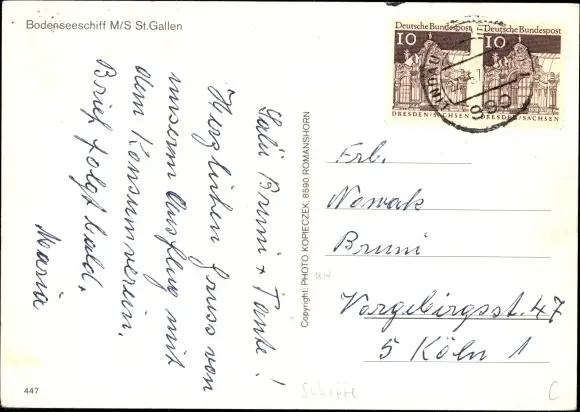 Bodenseeschiff M/S St.Gallen
Salü Bruni + Tante!
Herzlichen Gruss von
unserm Ausflug mit
dem Konsumverein.
Brief folgt bald.
Maria
Copyright: PHOTO KOPIECZEK, 8590 ROMANSHORN
Deutsche Bundespost
10
DRESDEN/SACHSEN
Deutsche Bundespost
10
DRESDEN/SACHSEN
LINDAU
Frl.
Nowak
Bruni
Vorgebirgsst. 47
5 Köln 1
Schiffe
C
447